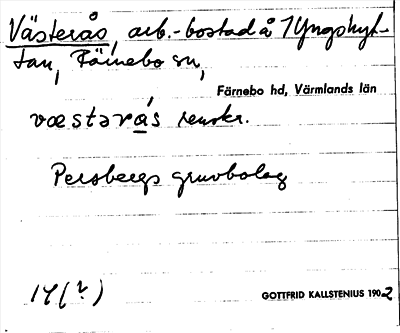 Västerås, arb.-bostad å Yngshyt-
tan, Färnebo sn,
Färnebo hd, Värmlands län
væstərás renskr.
Persbergs gruvbolag
14(?)
GOTTFRID KALLSTENIUS 1902